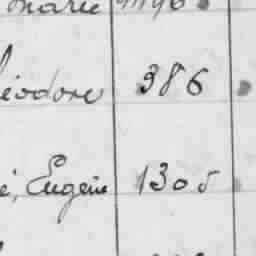 Marie
éodore 386
é, Eugène 1305